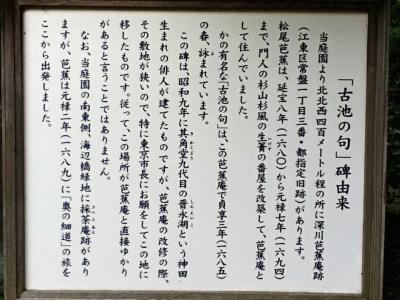 「古池の句」碑由来
当庭園より北北西四百メートル程の所に深川芭蕉庵跡
(江東区常盤一丁目三番・都指定旧跡)があります。
松尾芭蕉は、延宝八年(一六八〇)から元禄七年(一六九四)
まで、門人の杉山杉風の生簀の番屋を改築して、芭蕉庵と
して住んでいました。
かの有名な「古池の句」は、この芭蕉庵で貞享三年(一六八五)
の春、詠まれています。
この碑は、昭和九年に其角堂九代目の晋永湖という神田
生まれの俳人が建てたものですが、芭蕉庵の改修の際、
その敷地が狭いので、特に東京市長にお願をしてこの地に
移したものです。従って、この場所が芭蕉庵と直接ゆかり
があると言うことではありません。
なお、当庭園の南東側、海辺橋緑地に採荼庵跡があり
ますが、芭蕉は元禄二年(一六八九)に「奥の細道」の旅を
ここから出発しました。